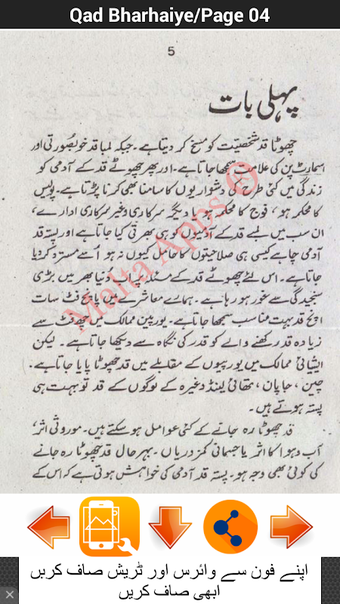 Qad Bharhaiye/Page 04
5
پہلی بات
چھوٹا قد شخصیت کو مسخ کر دیتا ہے۔ جبکہ لمبا قد خوبصورتی اور
اسمارٹ پن کی علامت سمجھا جاتا ہے۔ اور پھر چھوٹے قد کے آدمی کو
زندگی میں کئی طرح کی دشواریوں کا سامنا بھی کرنا پڑتا ہے۔ پولیس
کا محکمہ ہو، فوج کا محکمہ ہو یا دیگر سرکاری وغیر سرکاری ادارے،
ان سب میں لمبے قد کے آدمیوں کو ہی بھرتی کیا جاتا ہے اور پستہ قد
آدمی چاہے کیسی ہی صلاحیتوں کا حامل کیوں نہ ہو اُسے مسترد کر دیا
جاتا ہے۔ اس لئے چھوٹے قد کے مسئلہ پر اب دنیا بھر میں بڑی
سنجیدگی سے غور ہو رہا ہے۔ ہمارے معاشرے میں پانچ فٹ سات
انچ قد بہت مناسب سمجھا جاتا ہے۔ یورپین ممالک میں چھ فٹ سے
زیادہ قد رکھنے والے کو قدر کی نگاہ سے دیکھا جاتا ہے۔ لیکن
ایشیائی ممالک میں یورپیوں کے مقابلے میں قد چھوٹا پایا جاتا ہے۔
چین، جاپان، تھائی لینڈ وغیرہ کے لوگوں کے قد تو بہت ہی
پستہ ہوتے ہیں۔
قد چھوٹا رہ جانے کے کئی عوامل ہو سکتے ہیں۔ موروثی اثر،
آب و ہوا کا اثر یا جسمانی کمزوریاں۔ بہرحال قد چھوٹا رہ جانے
کی کوئی بھی وجہ ہو۔ پستہ قد آدمی کی خواہش ہوتی ہے کہ اس کے
Malta Apps ®
اپنے فون سے وائرس اور ٹریش صاف کریں
ابھی صاف کریں